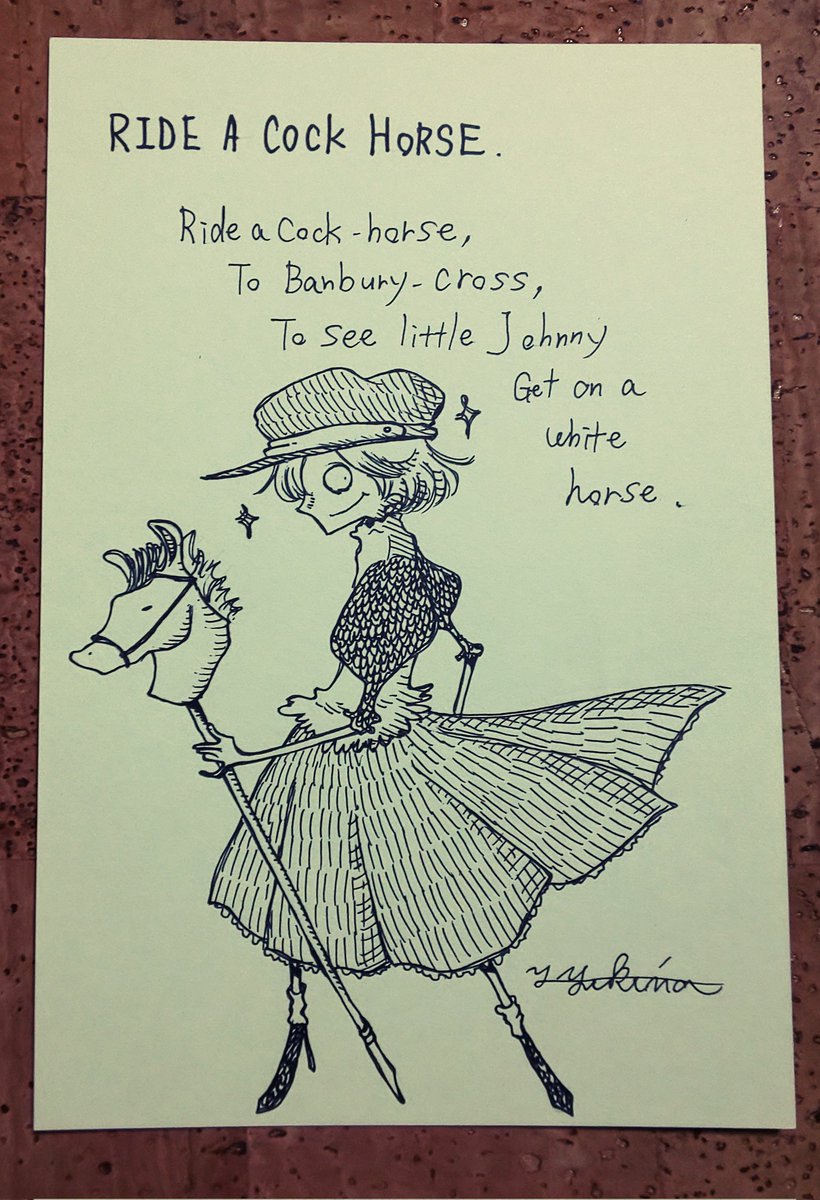 RIDE A COCK HORSE.
Ride a Cock-horse,
To Banbury-cross,
To see little Johnny
Get on a
white
horse.
y Yukina